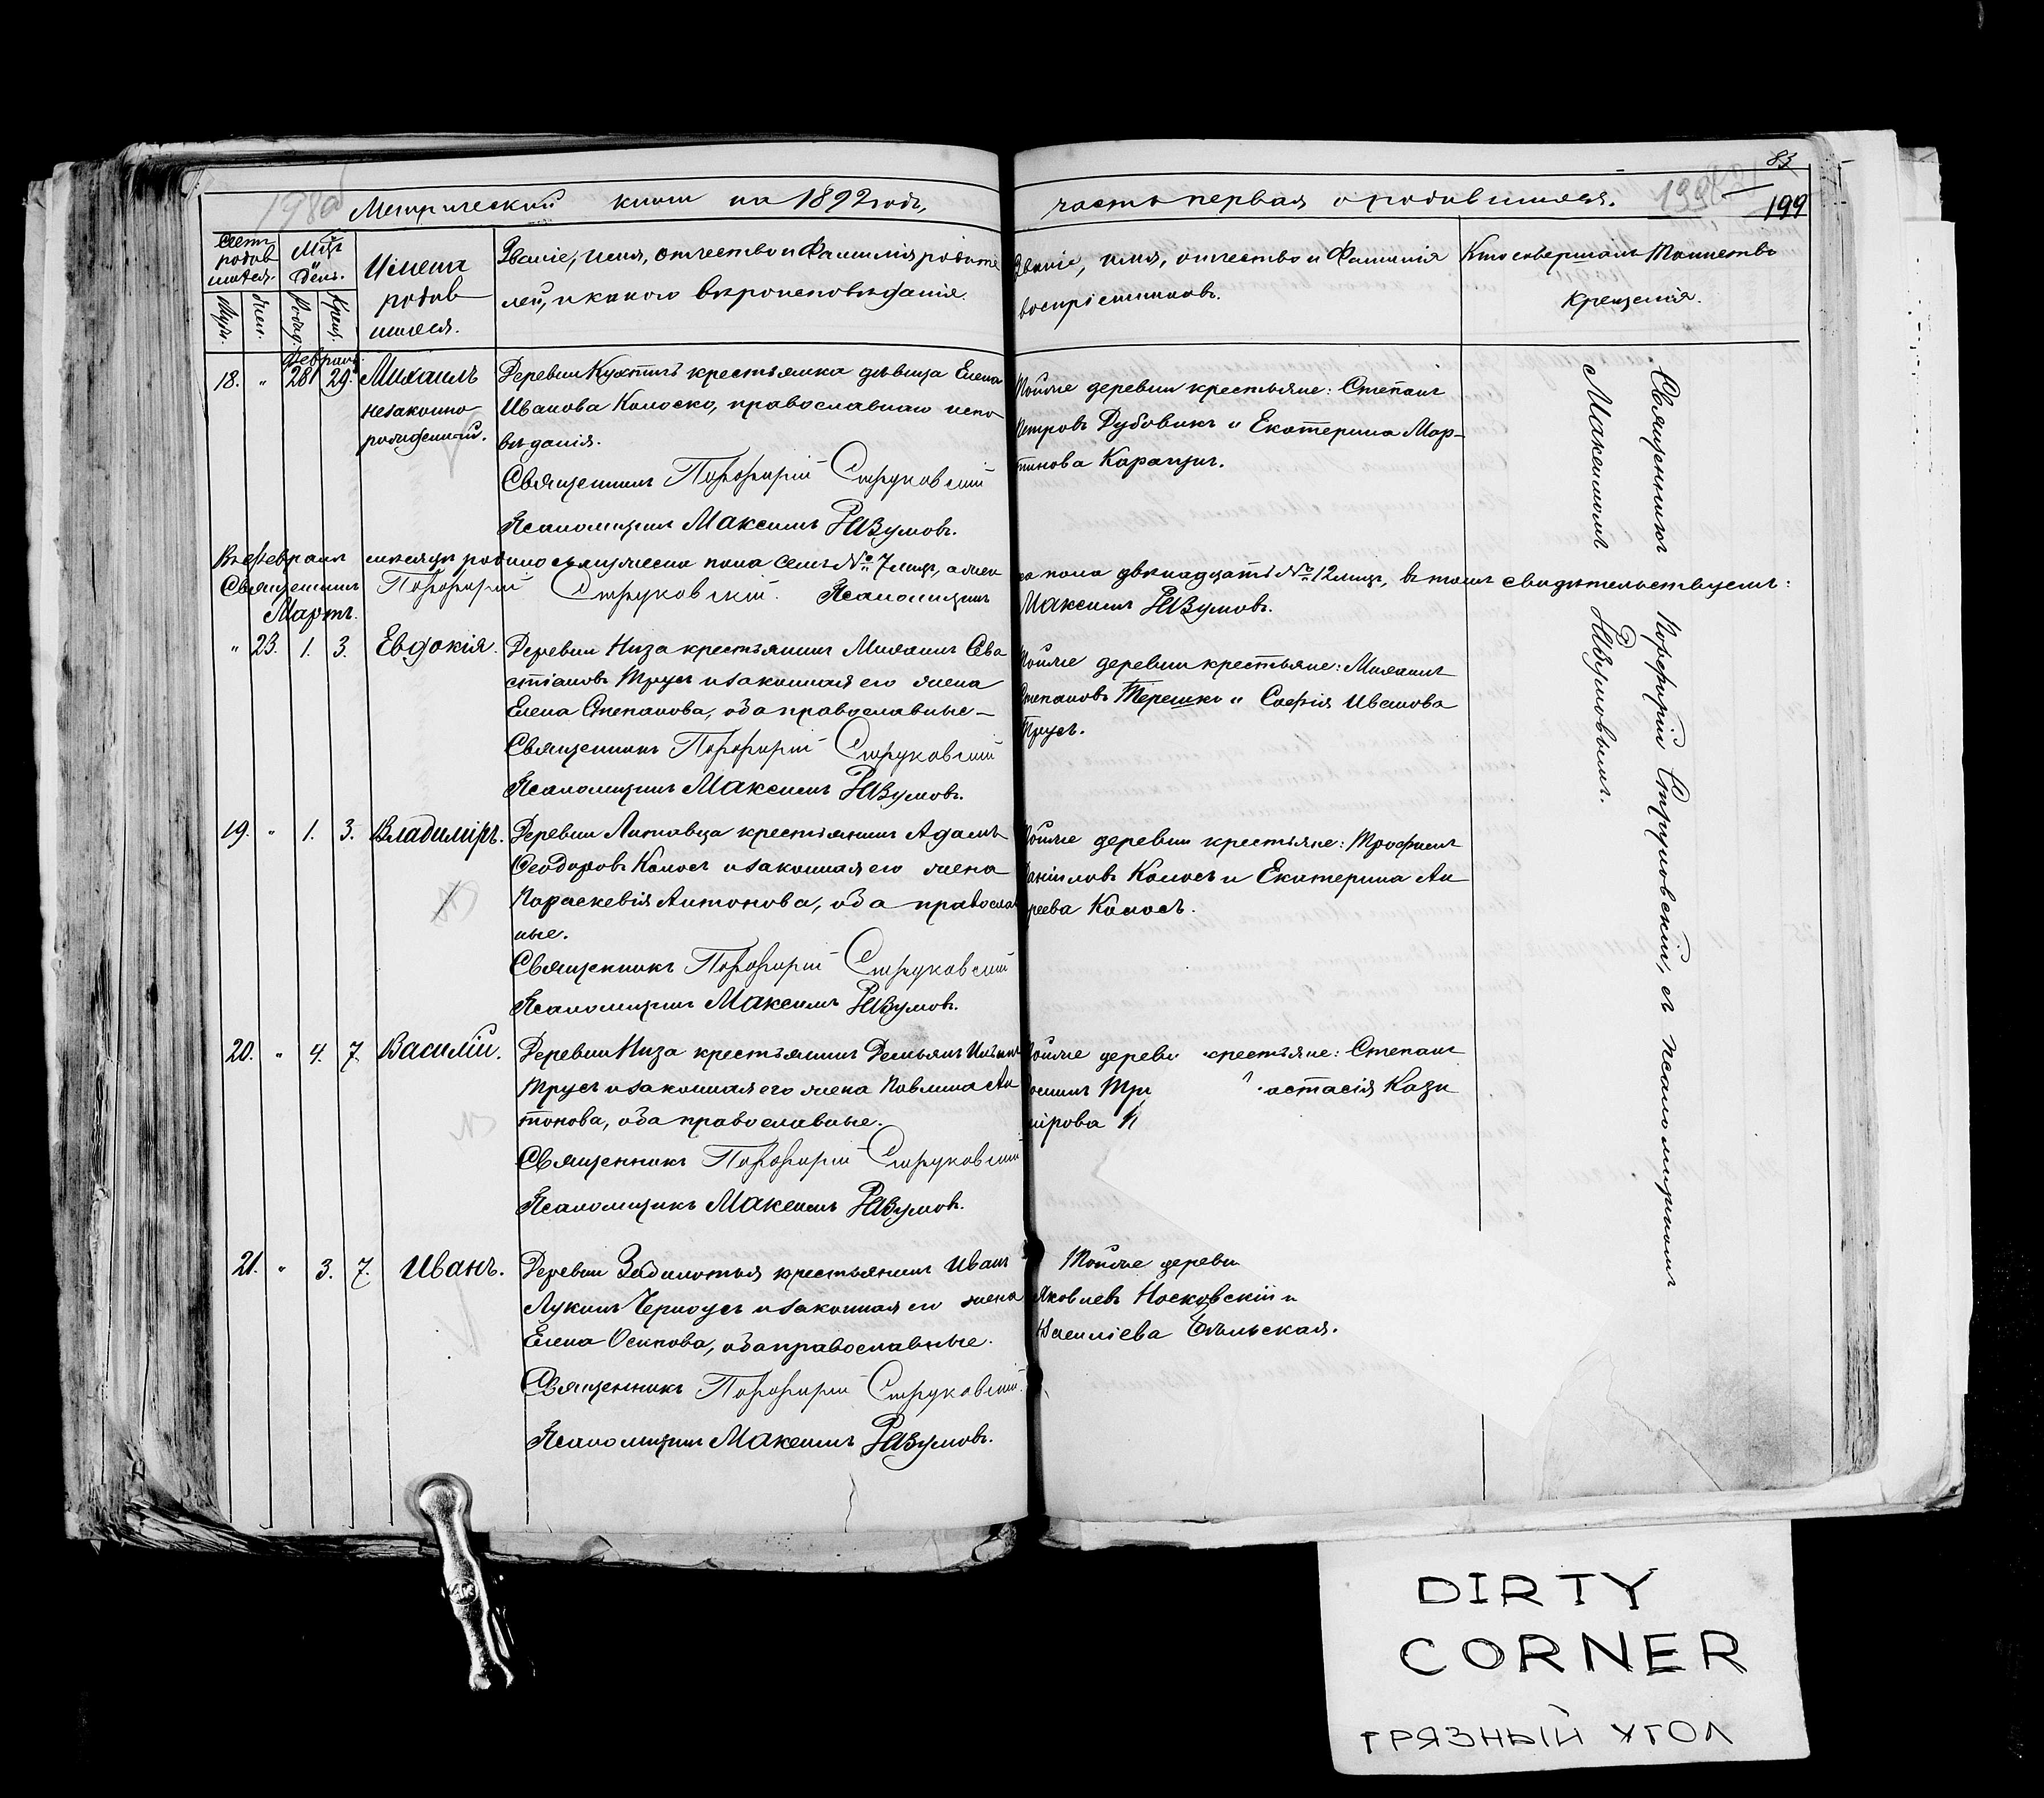 83
199
Метрической книги на 1892 годъ, часть первая о родившихся.
Счетъ родив шихся.
Муж. Жен.
Мцъ и День.
Рожд. Крещ.
Имена родив шихся.
Званіе, имя, отчество и Фамилія родите
лей, и какого вѣроисповѣданія.
Званіе, имя, отчество и Фамилія
воспріемниковъ.
Кто совершалъ Таинство
Крещенія.
Февраль.
18. " 28 29. Михаилъ
незаконно
рожденный.
Деревни Кухтичъ крестьянка дѣвица Елена
Иванова Колоско, православнаго испо
вѣданія.
Священникъ Порфирій Струковскій
Псаломщикъ Максимъ Разумовъ.
Тойже деревни крестьяне: Степанъ
Петровъ Дубовикъ и Екатерина Мар-
тинова Карапузъ.
Въ Февралѣ мѣсяцѣ родилось мужеска пола семь № 7 лицъ, а жен
ска пола двѣнадцать № 12 лицъ, въ томъ свидѣтельствуемъ:
Священникъ Порфирій Струковскій. Псаломщикъ
Максимъ Разумовъ.
Мартъ.
" 23. 1. 3. Евдокія.
Деревни Низа крестьянинъ Михаилъ Сева
стіановъ Трусъ и законная его жена
Елена Степанова, оба православные –
Священникъ Порфирій Струковскій
Псаломщикъ Максимъ Разумовъ.
Тойже деревни крестьяне: Михаилъ
Степановъ Терешко и Софія Иванова
Трусъ.
19. " 1. 3. Владиміръ.
Деревни Литавца крестьянинъ Адамъ
Ѳеодоровъ Колосъ и законная его жена
Параскевія Антонова, оба православ
ные.
Священникъ Порфирій Струковскій
Псаломщикъ Максимъ Разумовъ.
Тойже деревни крестьяне: Трофимъ
Даніиловъ Колосъ и Екатерина Ан
дреева Колосъ.
20. " 4. 7. Василій.
Деревни Низа крестьянинъ Демьянъ
Трусъ и законная его жена Павлина Ан
тонова, оба православные.
Священникъ Порфирій Струковскій
Псаломщикъ Максимъ Разумовъ.
Тойже дерев крестьяне: Степанъ
астасія Кази
мірова
21. " 3. 7. Иванъ.
Деревни Заболотья крестьянинъ Иванъ
Лукинъ Черноусъ и законная его жена
Елена Осипова, оба православные.
Священникъ Порфирій Струковскій.
Псаломщикъ Максимъ Разумовъ.
Тойже деревн
Яковлевъ Носковскій и
Василіева Бѣльская.
Священникъ Порфирій Струковскій, съ псаломщикомъ
Максимомъ Разумовымъ.
DIRTY
CORNER
ГРЯЗНЫЙ УГОЛ